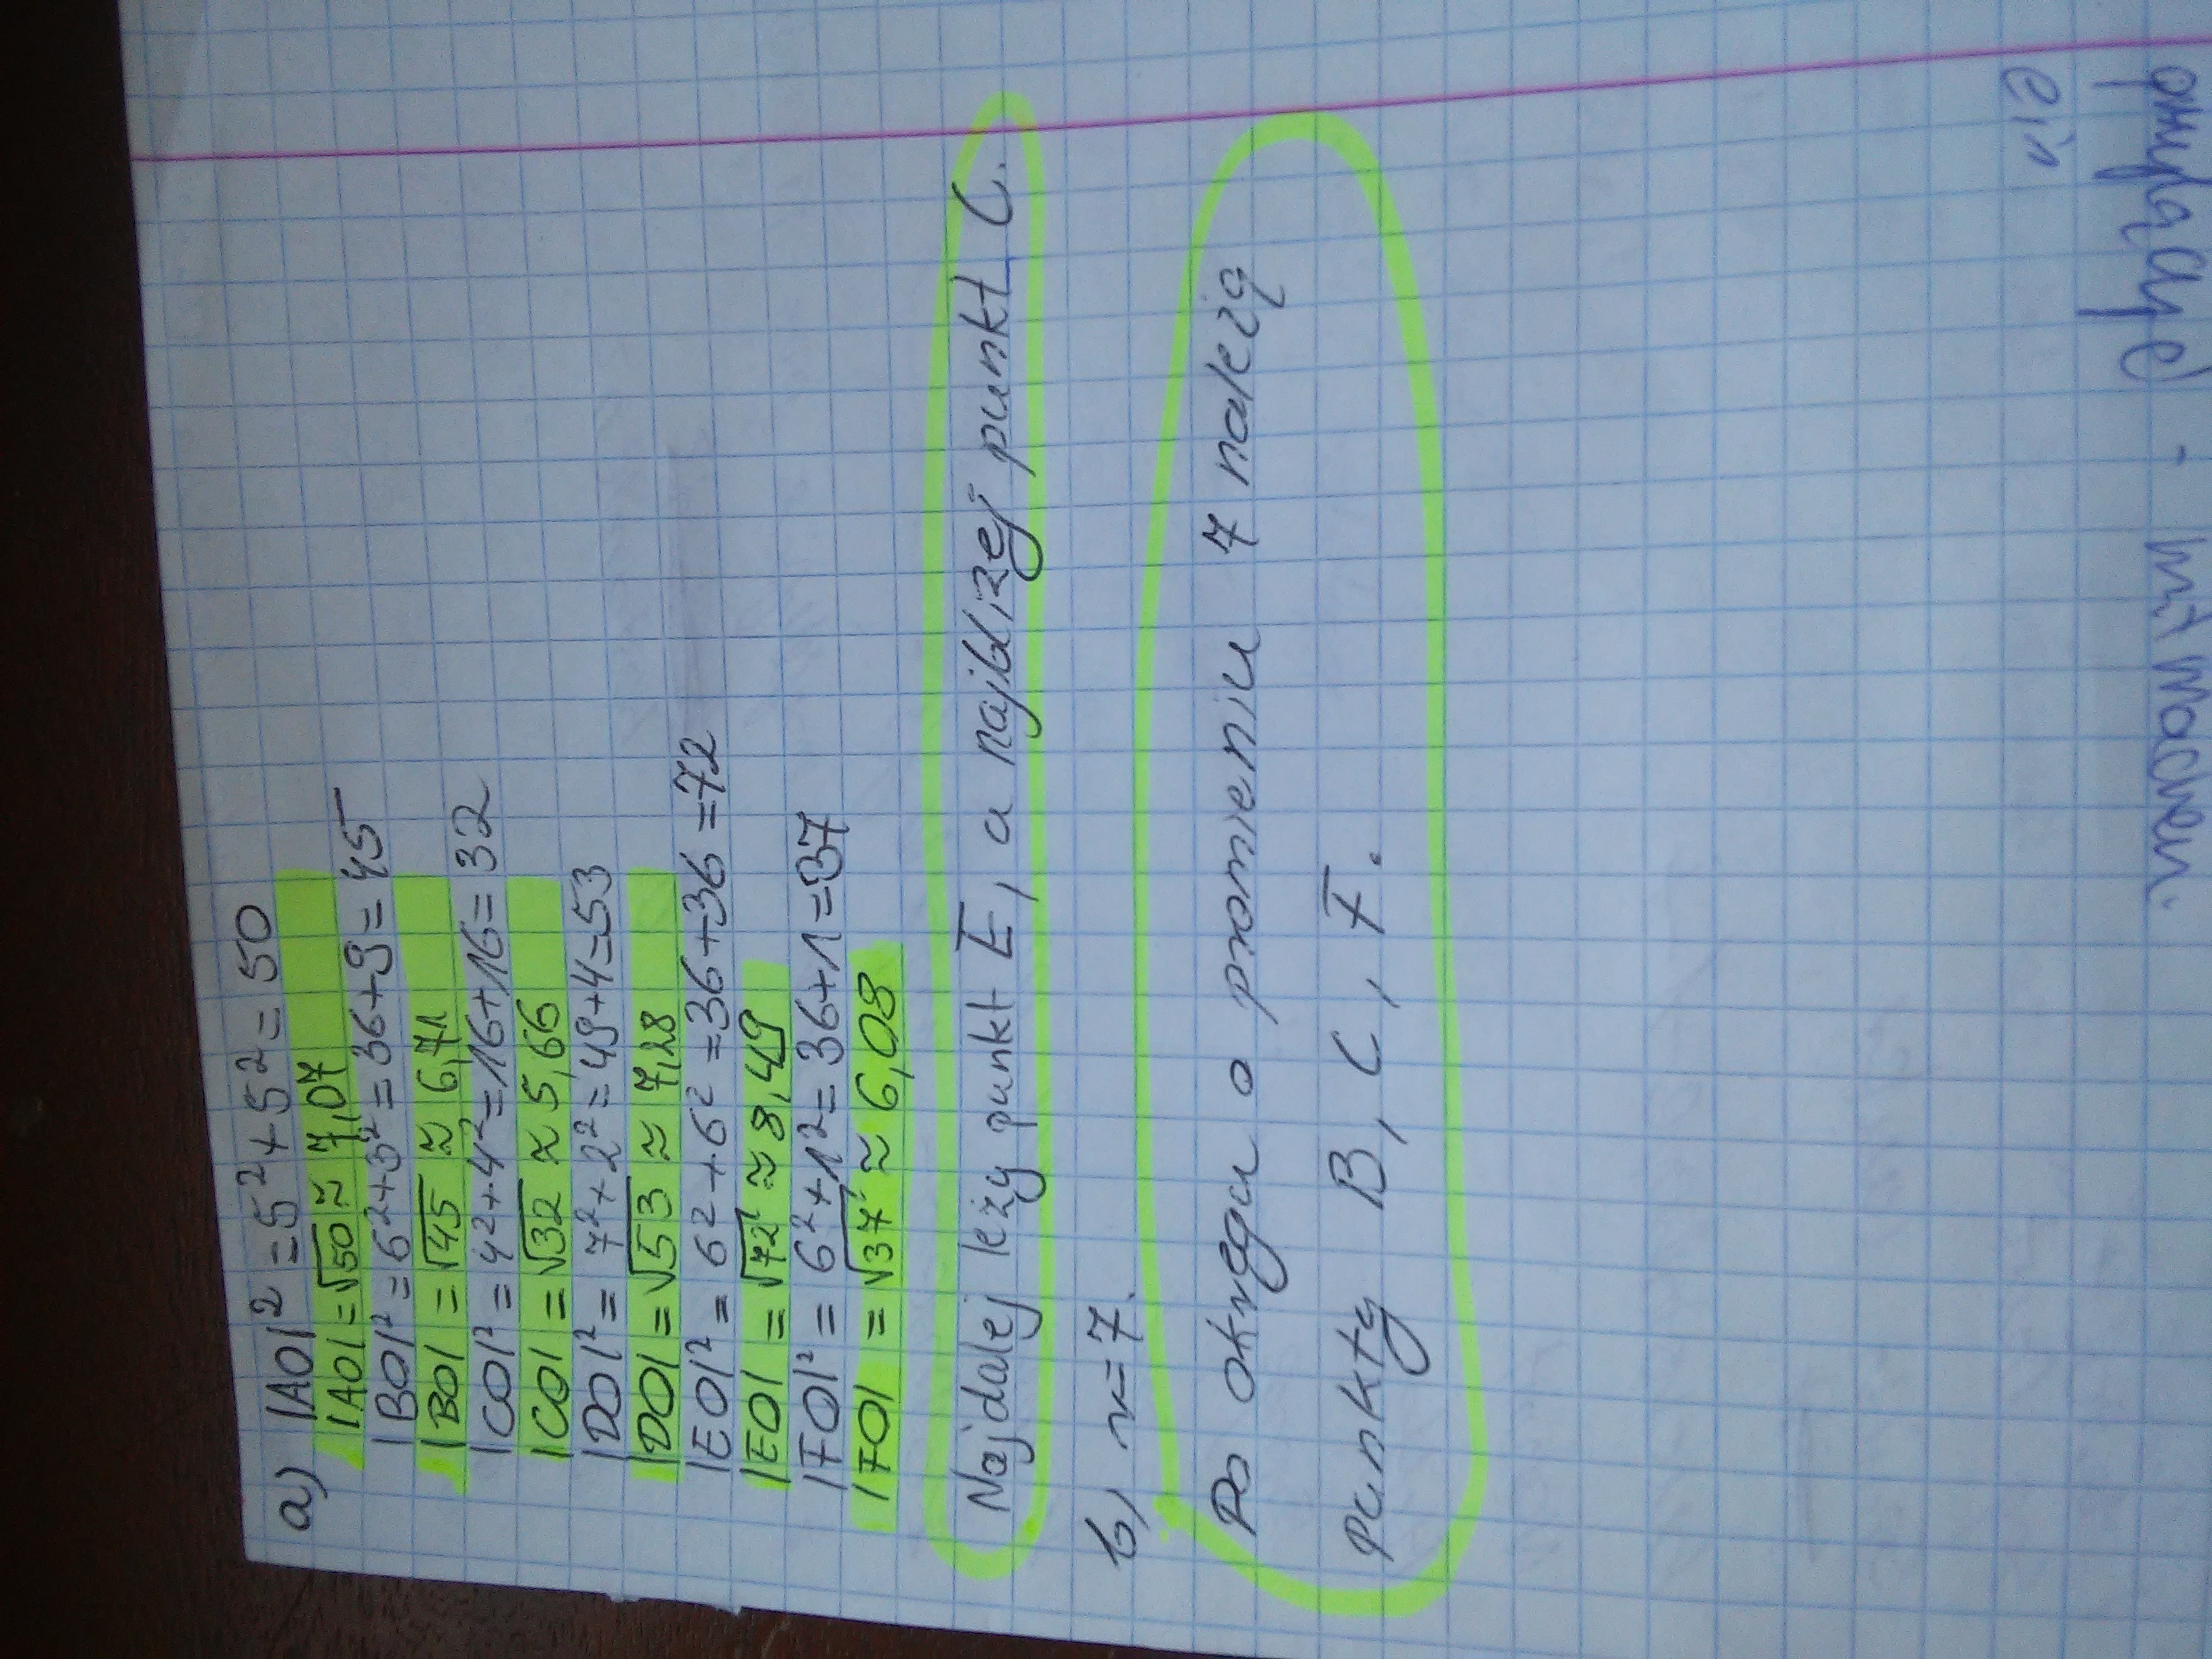 a) |AO|² = 5² + 5² = 50
|AO| = √50 ≈ 7,07
|BO|² = 6² + 3² = 36 + 9 = 45
|BO| = √45 ≈ 6,71
|CO|² = 4² + 4² = 16 + 16 = 32
|CO| = √32 ≈ 5,66
|DO|² = 7² + 2² = 49 + 4 = 53
|DO| = √53 ≈ 7,28
|EO|² = 6² + 6² = 36 + 36 = 72
|EO| = √72 ≈ 8,49
|FO|² = 6² + 1² = 36 + 1 = 37
|FO| = √37 ≈ 6,08
Najdalej leży punkt E, a najbliżej punkt C.
b) r = 7.
Do okręgu o promieniu 7 należą
punkty B, C, F.
- mitmachen.